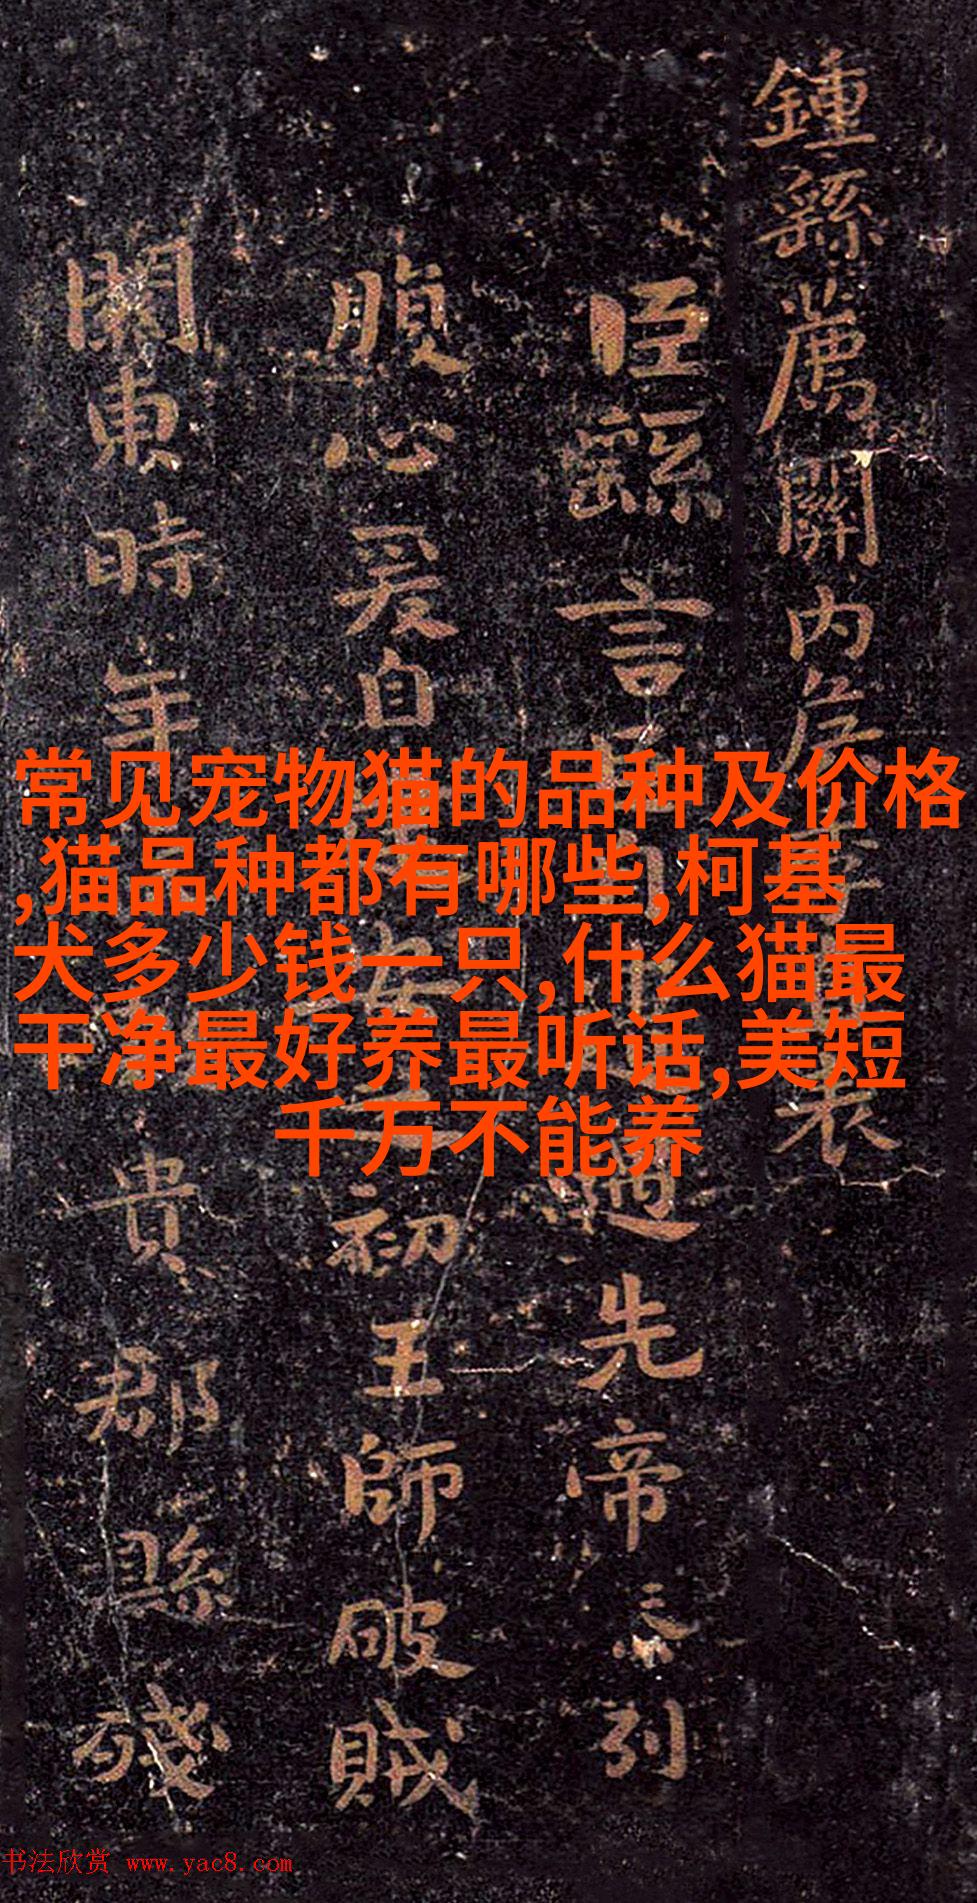 鍾繇薦關内侯表
臣繇言遇先帝忝列
腹心爰自安之初王師破賊
關東時年貴郡縣殘
常见宠物猫的品种及价格
,猫品种都有哪些,柯基
犬多少钱一只,什么猫最
干净最好养最听话,美短
千万不能养
书法欣赏 www.yac8.com